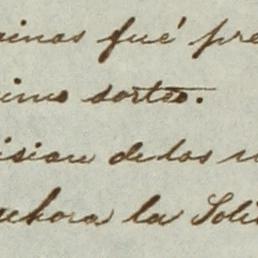 ainas fué pre
imo sorteo.
ision de los
ahora la Soli